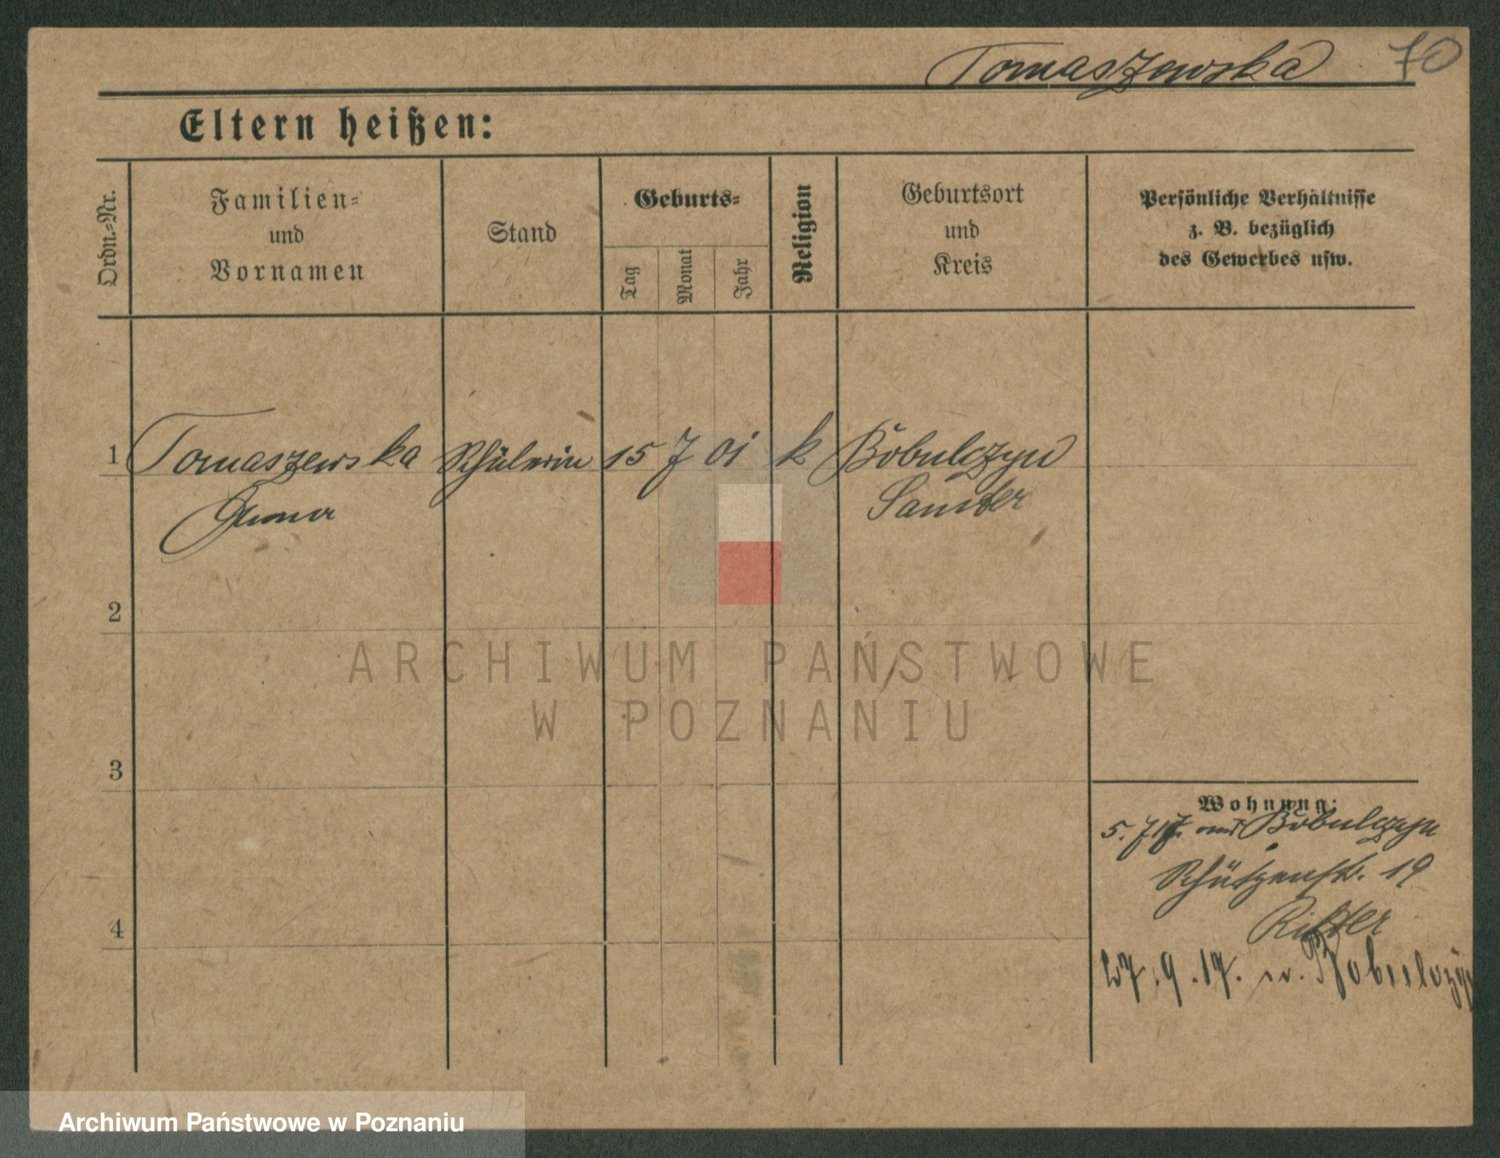 Tomaszewska 70
Eltern heißen:
Ordn.-Nr.
Familien-
und
Vornamen
Stand
Geburts-
Tag
Monat
Jahr
Religion
Geburtsort
und
Kreis
Persönliche Verhältnisse
z. B. bezüglich
des Gewerbes usw.
1 Tomaszewska Schülerin 15 7 01 k Bobulczyn
Samter
2
3
4
Wohnung:
5. 7 17. Bobulczyn
Schützenstr. 19
27. 9. 17. n. Bobulczyn
ARCHIWUM PAŃSTWOWE
W POZNANIU
Archiwum Państwowe w Poznaniu